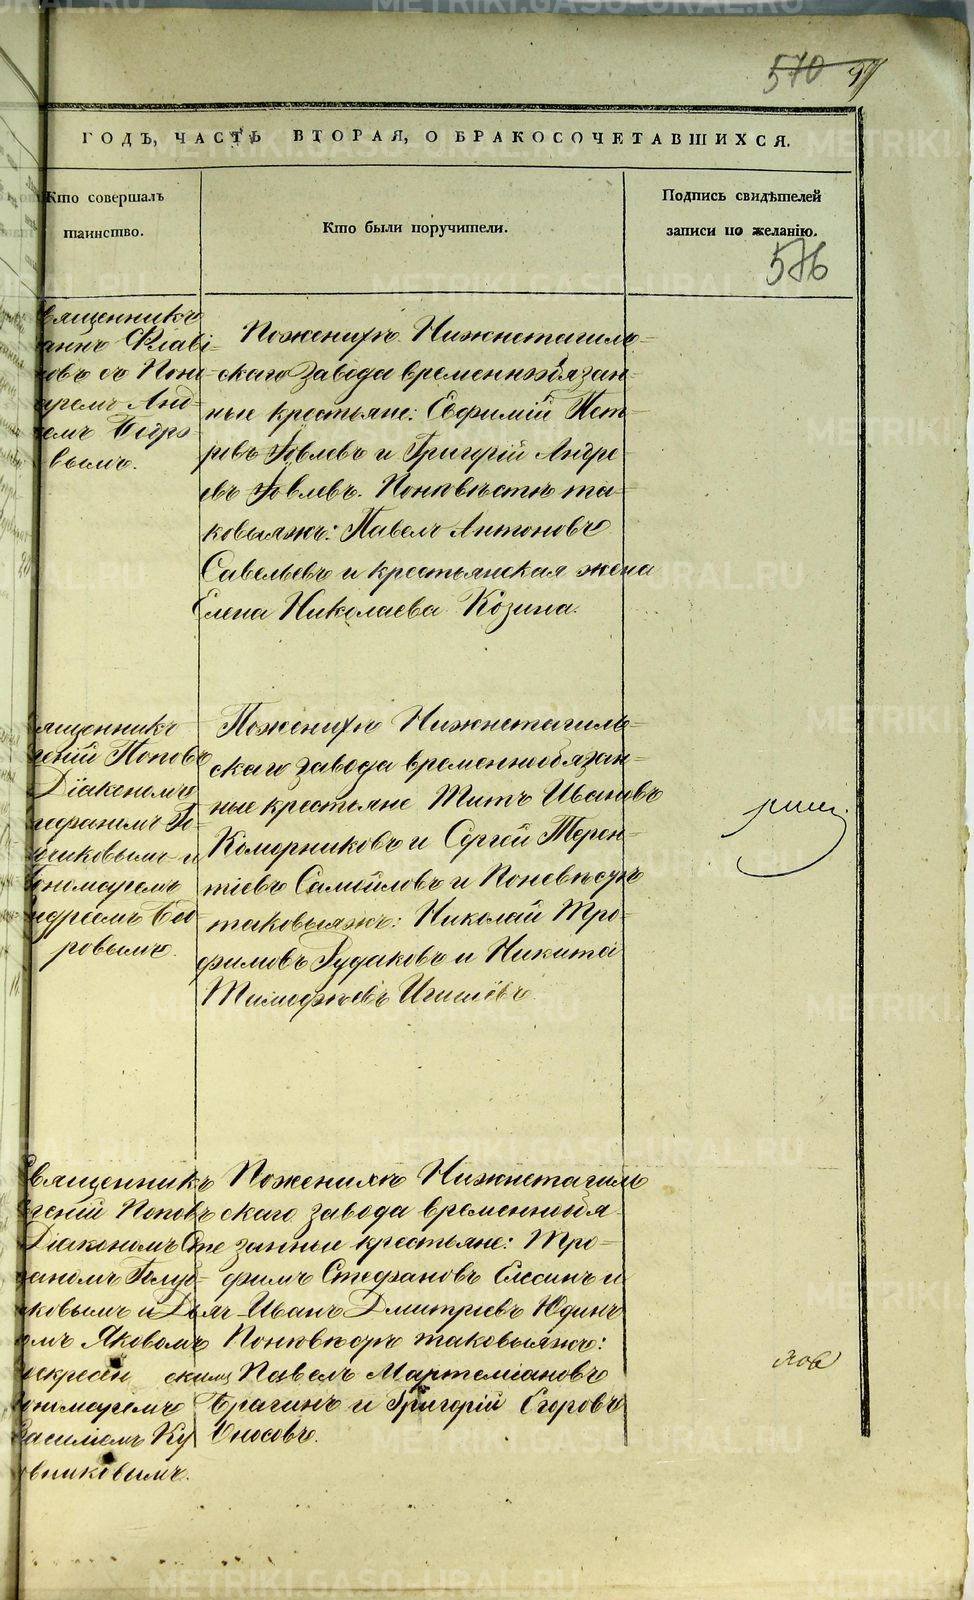 570 97
ГОДЪ, ЧАСТЬ ВТОРАЯ, О БРАКОСОЧЕТАВШИХСЯ.
Кто совершалъ
таинство.
Кто были поручители.
Подпись свидѣтелей
записи по желанію.
576
вященникъ
аннъ Флаві-
новъ съ Поно-
аремъ Анд-
емъ Бобро-
вымъ.
По женихѣ Нижнетагиль-
скаго завода временнообязан-
ные крестьяне: Евфимій Пет-
ровъ Іовлевъ и Григорій Андре-
евъ Іовлевъ. По невѣстѣ та-
ковыяжъ: Павелъ Антоновъ
Савельевъ и крестьянская жена
Елена Николаева Козина.
ященникъ
геній Поповъ
Діакономъ
тефаномъ Го-
чиковымъ и
Пономаремъ
ндреемъ Боб-
ровымъ.
По женихѣ Нижнетагиль-
скаго завода временнообязан-
ные крестьяне Титъ Ивановъ
Коморниковъ и Сергей Терен-
тіевъ Самойловъ и По невѣстѣ
таковыяжъ: Николай Тро-
фимовъ Рудаковъ и Никита
Тимофеевъ
Священникъ
вгеній Поповъ
Діакономъ Сте
фаномъ Голуб-
ковымъ и Дьяч-
омъ Яковомъ
оскресен скимъ
ономаремъ
Василіемъ Ку
овниковымъ.
По женихѣ Нижнетагиль
скаго завода временнообя-
занные крестьяне: Тро-
фимъ Стефановъ Елесинъ и
Иванъ Дмитріевъ Юдинъ
По невѣстѣ таковыяжъ:
Павелъ Мартеміановъ
Брагинъ и Григорій Егоровъ
Оносовъ.
ков